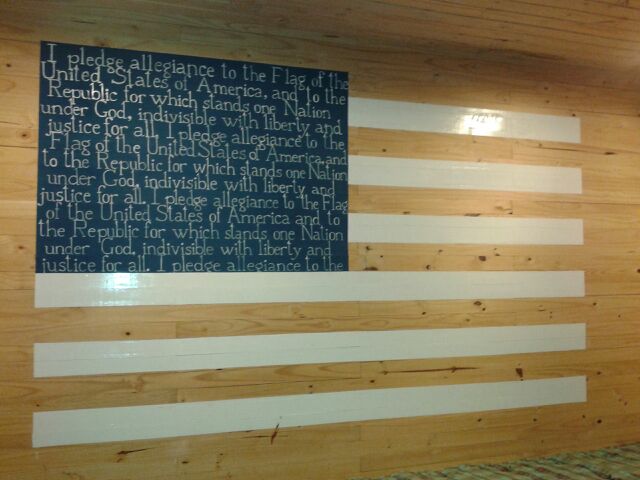 I pledge allegiance to the Flag, of the
United States of America, and to the
Republic for which stands one Nation
under God, indivisible with liberty and
justice for all. I pledge allegiance to the
Flag of the United States of America, and
to the Republic for which stands one Nation
under God, indivisible with liberty and
justice for all. I pledge allegiance to the Flag
of the United States of America and to
the Republic for which stands one Nation
under God, indivisible with liberty and
justice for all. I pledge allegiance to the